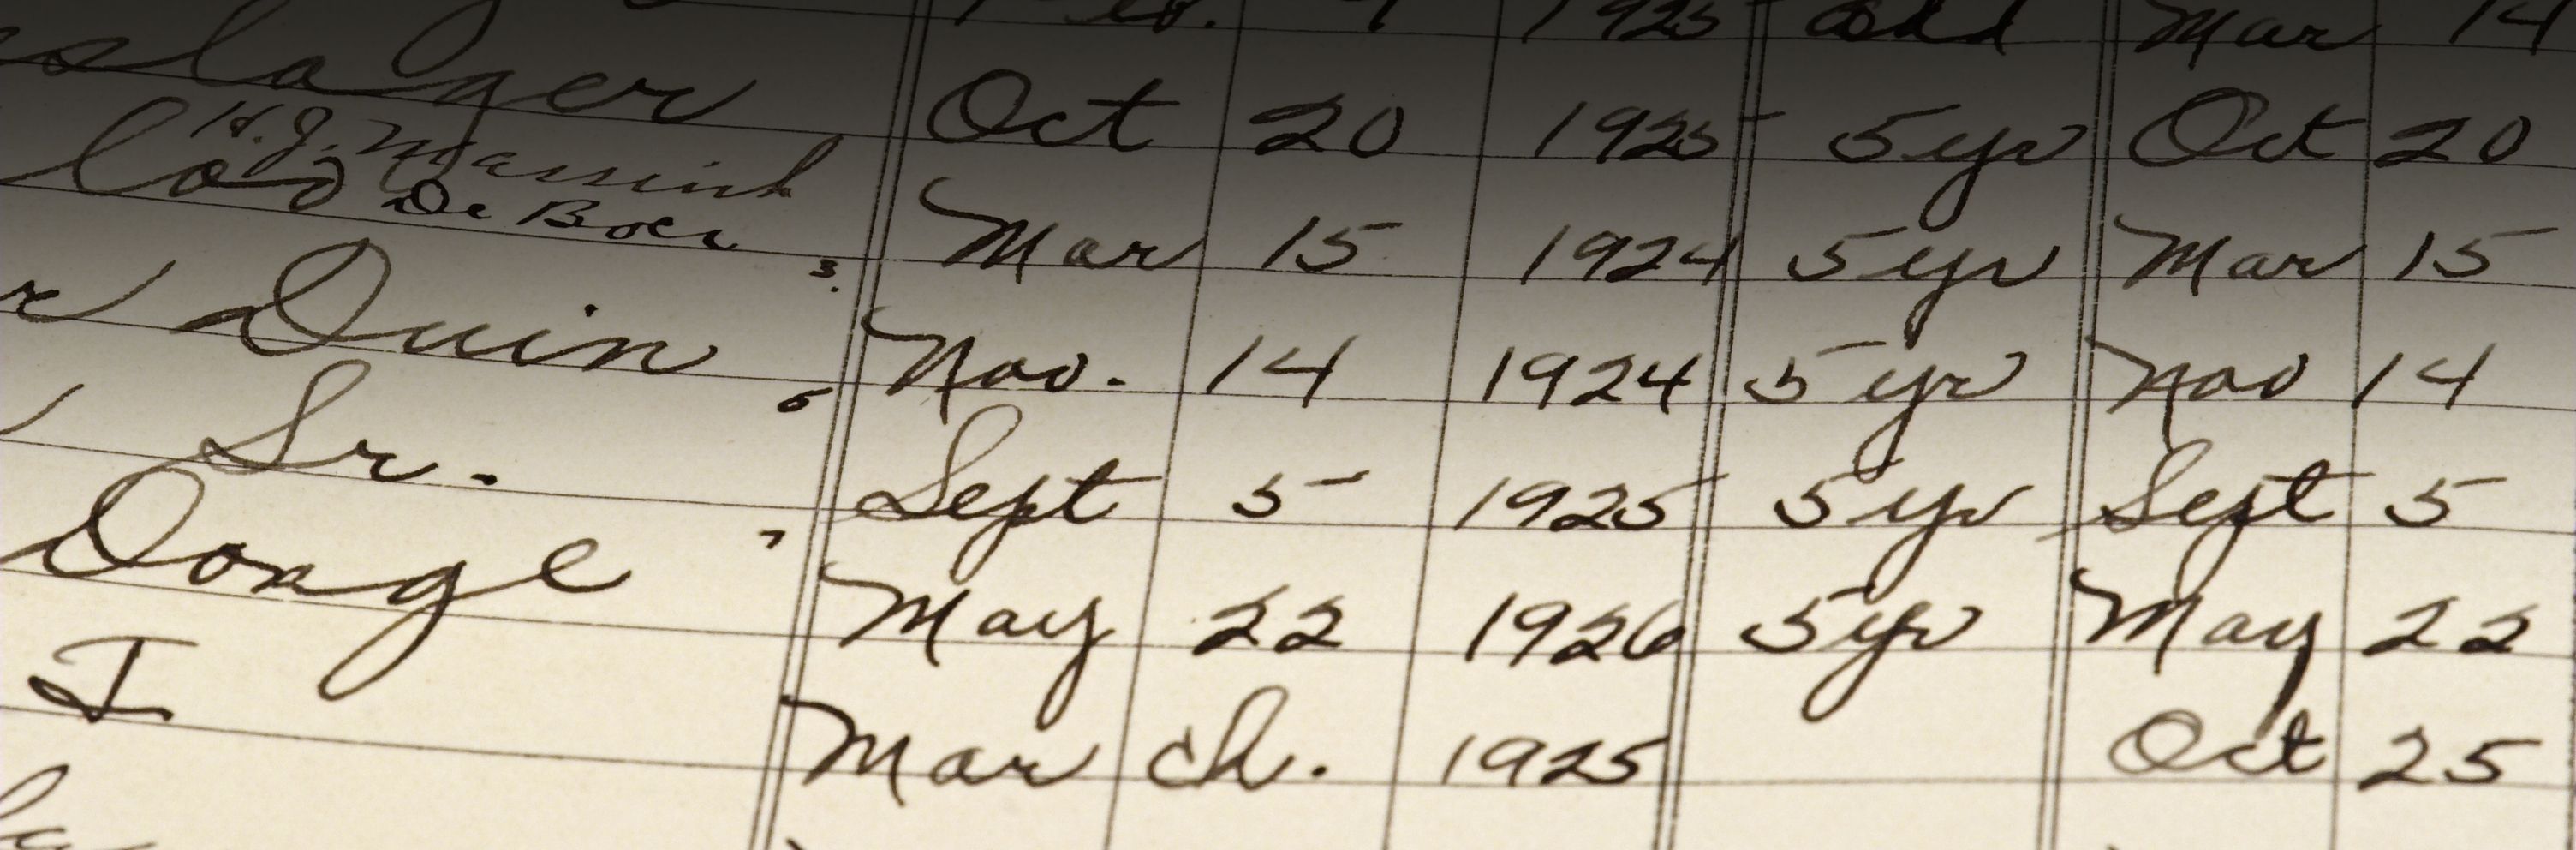 1925 Mar 14
slager Oct 20 1925 5 yr Oct 20
H.J.
De Boer Mar 15 1924 5 yr Mar 15
3.
r Duin Nov. 14 1924 5 yr Nov 14
6
Sr. Sept 5 1925 5 yr Sept 5
7
Donge May 22 1926 5 yr May 22
I March. 1925 Oct 25